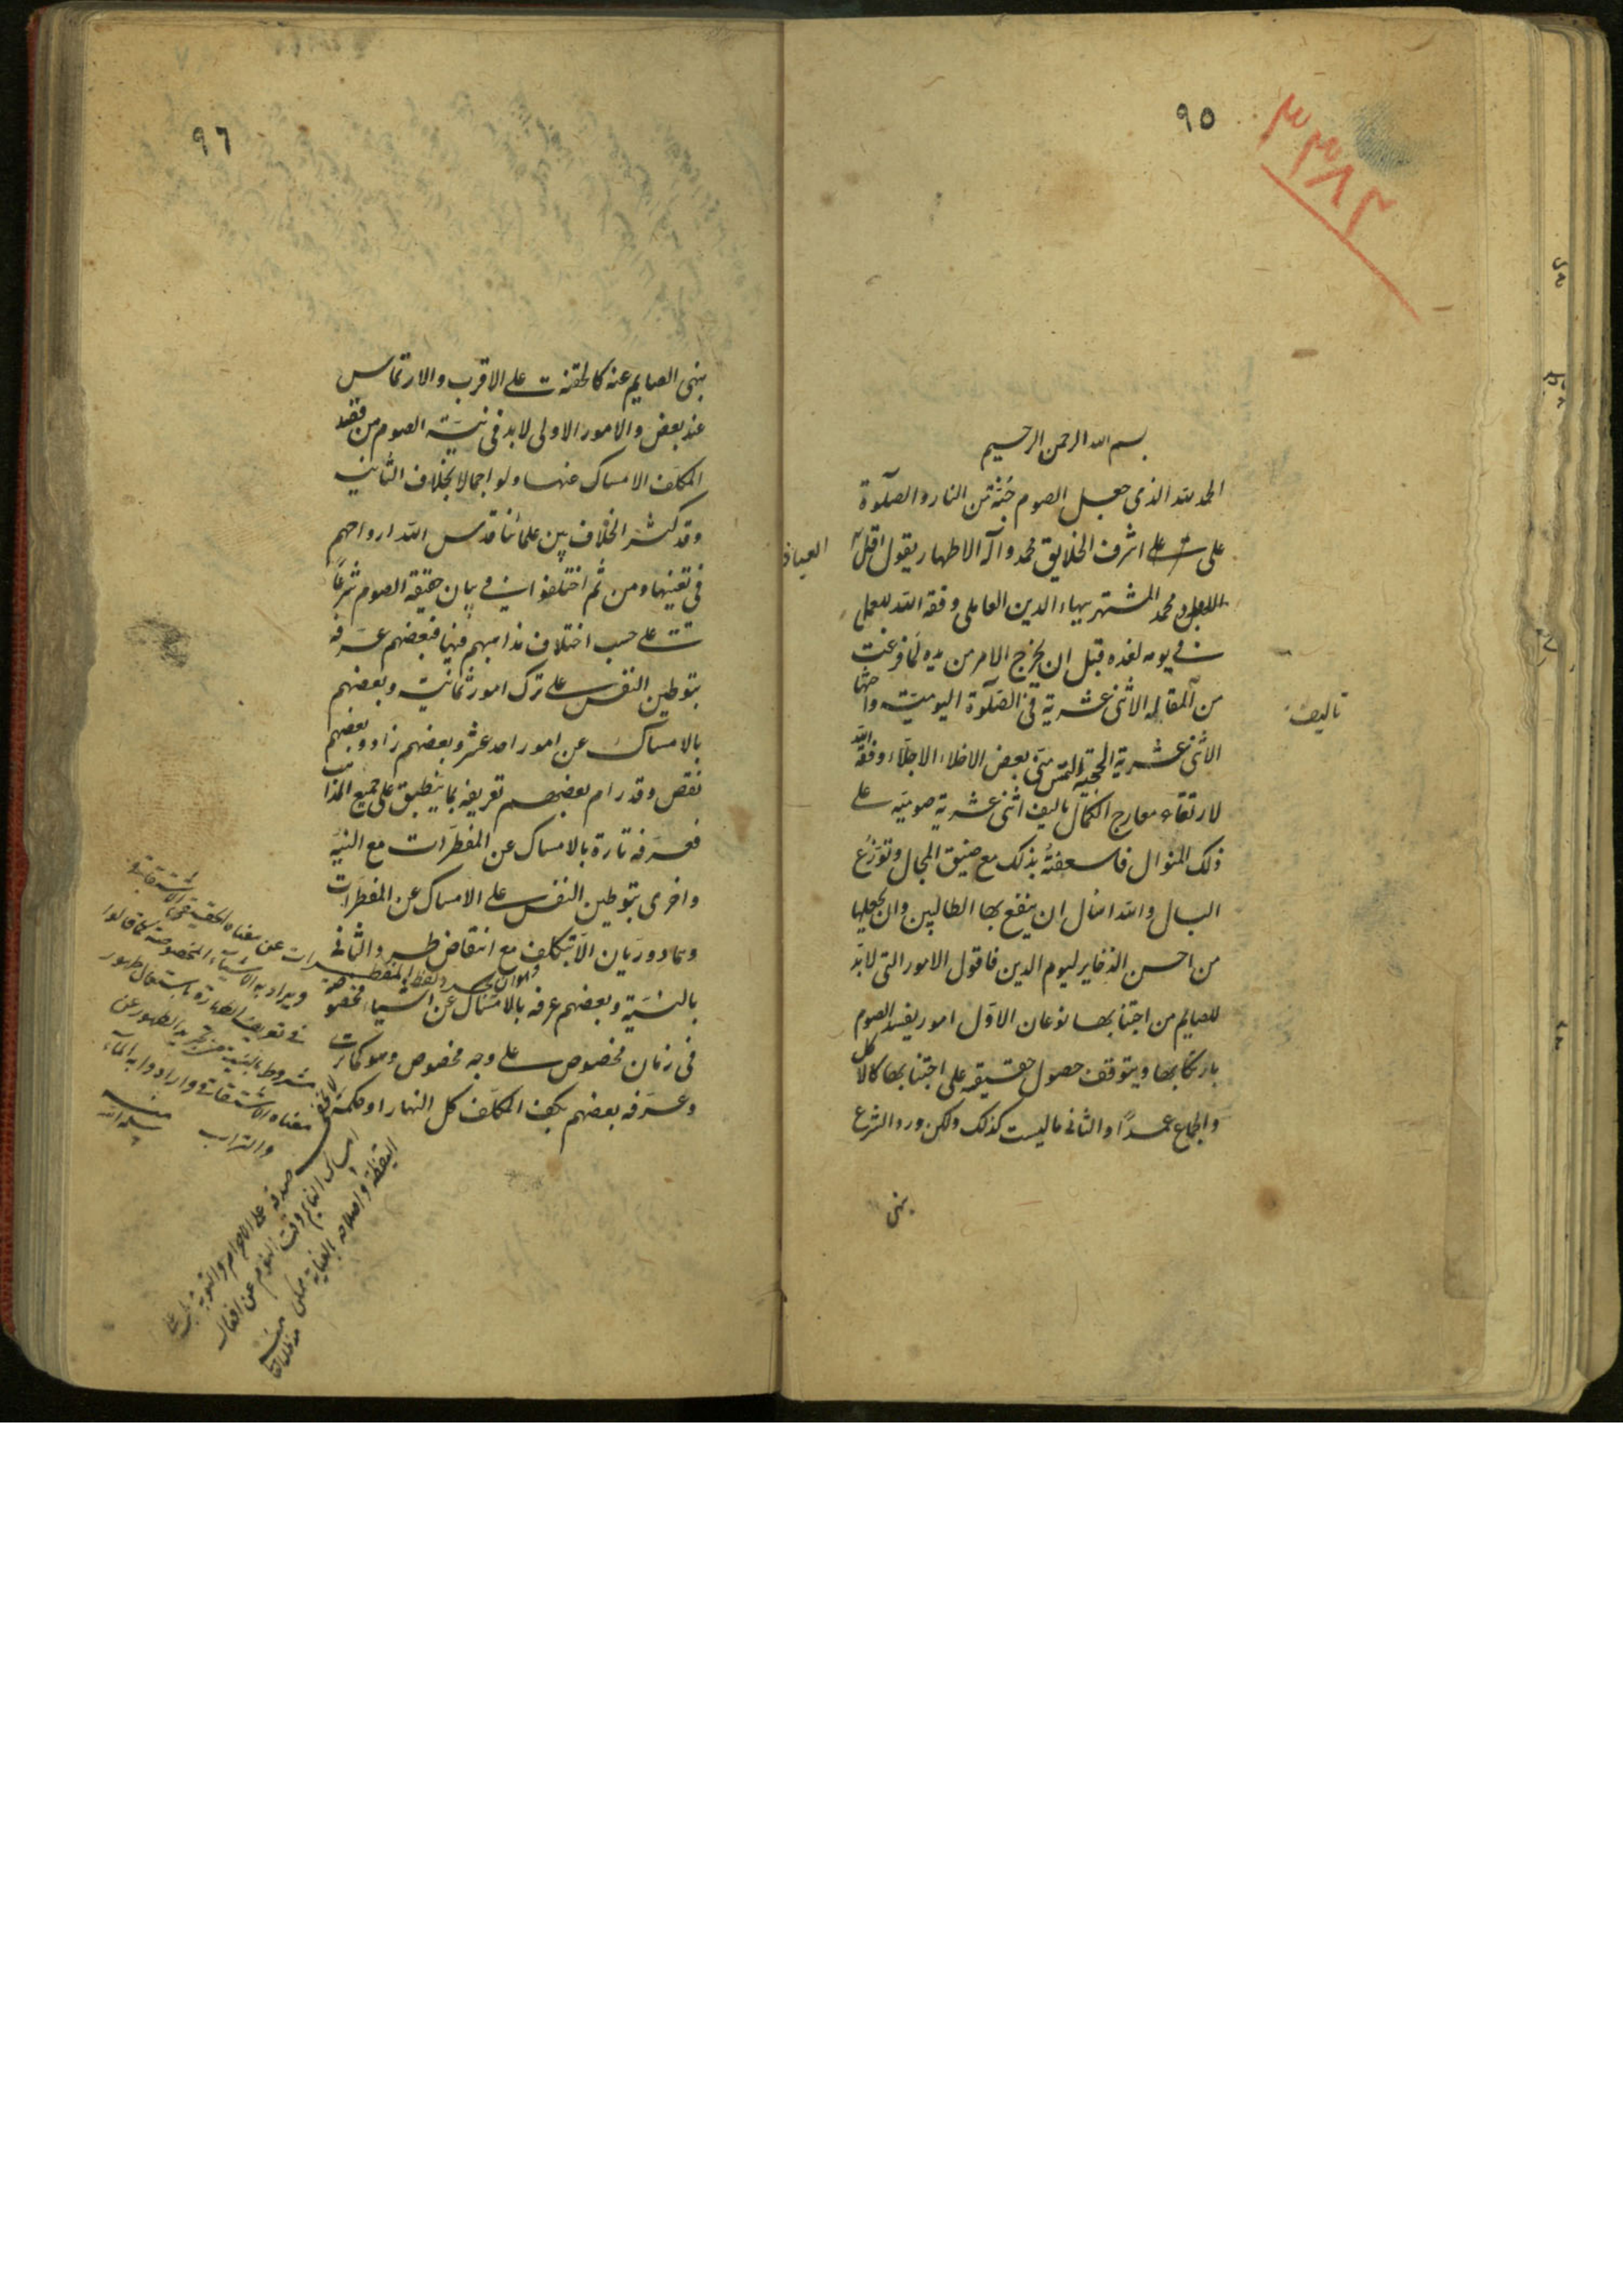 ٩٥
٣٣٨٢
بسم الله الرحمن الرحيم
الحمد لله الذي جعل الصوم جنة من النار والصلوة
على اشرف الخلايق محمد وآله الاطهار يقول اقل
العباد
محمد المشتهر ببهاء الدين العاملي وفقه الله للعمل
في يومه لغده قبل ان يخرج الامر من يده لما فرغت
من المقاله الاثنى عشرية في الصلوة اليومية واختها
تاليف
الاثنى عشرية الحجية التمس مني بعض الاخلاء الاجلاء وفقه الله
لارتقاء معارج الكمال تاليف اثنى عشرية صومية على
ذلك المنوال فاسعفته بذلك مع ضيق المجال وتوزع
البال والله اسال ان ينفع بها الطالبين وان يجعلها
من احسن الذخاير ليوم الدين فاقول الامور التي لابد
للصايم من اجتنابها نوعان الاول امور يفسد الصوم
بارتكابها ويتوقف حصول حقيقته على اجتنابها كالاكل
والجماع عمدا والثاني ما ليست كذلك ولكن ورد الشرع
بنهى
٩٦
بنهى الصايم عنه كالحقنة على الاقرب والارتماس
عند بعض والامور الاولى لابد في نية الصوم من قصد
المكلف الامساك عنها ولو اجمالا بخلاف الثانية
وقد كثر الخلاف بين علمائنا قدس الله ارواحهم
في تعيينها ومن ثم اختلفوا في بيان حقيقة الصوم شرعا
على حسب اختلاف مذاهبهم فيها فبعضهم عرفه
بتوطين النفس على ترك امور ثمانية وبعضهم
بالامساك عن امور احد عشر وبعضهم زاد وبعضهم
نقص وقد رام بعضهم تعريفه بما ينطبق على جميع المذاهب
فعرفه تارة بالامساك عن المفطرات مع النية
واخرى بتوطين النفس على الامساك عن المفطرات
وهما دوريان الا بتكلف مع انتقاض طرد الثاني
بالنية وبعضهم عرفه بالامساك عن اشياء مخصوصة
في زمان مخصوص على وجه مخصوص وهو كما ترى
وعرفه بعضهم بكف المكلف كل النهار او حكمه
وهو ان يجرد لفظ المفطرات عن معناه الحقيقي الاشتقاقي
ويراد به الاشياء المخصوصة كما قالوا
في تعريف الطهارة باستعمال طهور
مشروط بالنية من تجريد الطهور عن
معناه الاشتقاقي وارادوا به الماء
والتراب منه
سلمه الله
امساك النايم وقت النوم عن افعال
اليقظة واصلاحه بالعناية ممكن منه